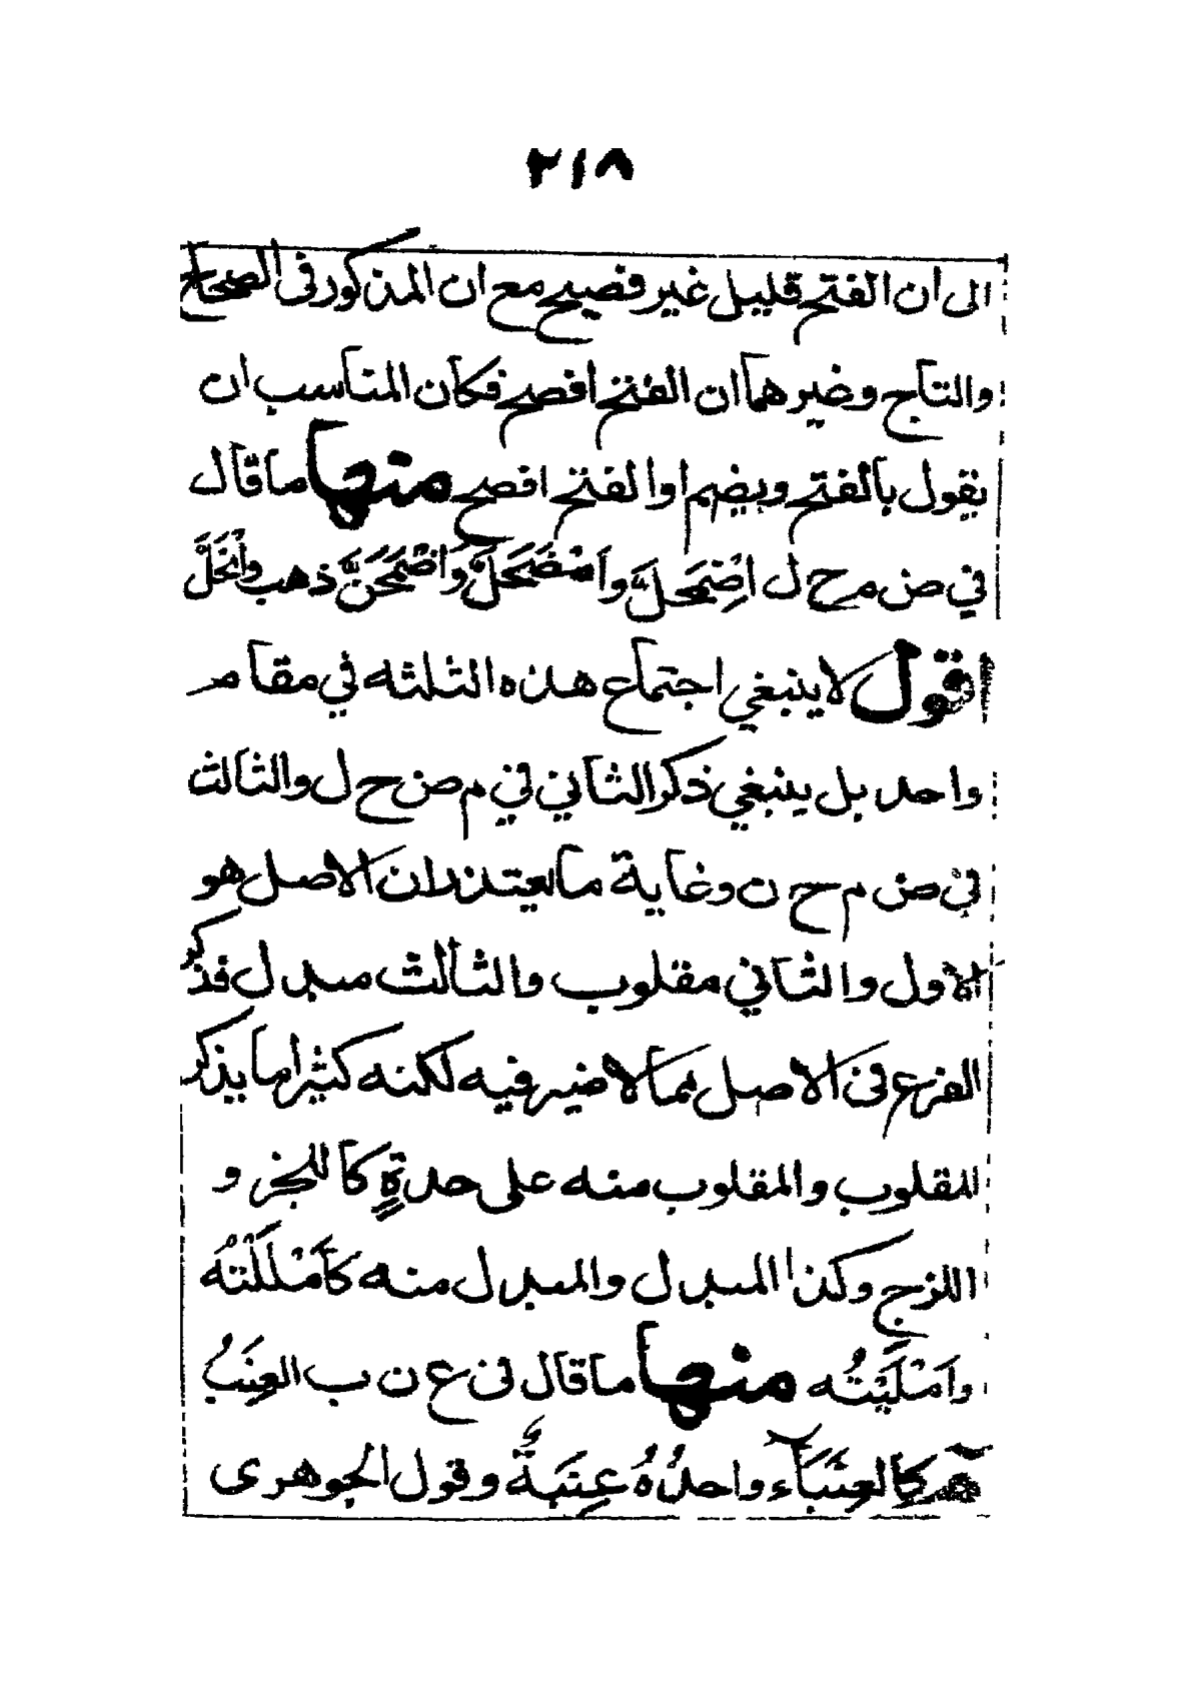 ٢١٨
الى ان الفتح قليل غير فصيح مع ان المذكور فى الصحاح
والتاج وغيرهما ان الفتح افصح فكان المناسب ان
يقول بالفتح ويضم او الفتح افصح منها ما قال
في ض م ح ل اضْمَحلَّ وامْضَحَلَّ وَاضْمَحَنَّ ذهب وانْحَلَّ
اقول لا ينبغي اجتماع هذه الثلثه في مقام
واحد بل ينبغي ذكر الثاني في م ض ح ل والثالث
في ض م ح ن وغاية ما يعتذر ان الاصل هو
الاول والثاني مقلوب والثالث مبدل فذكر
الفرع فى الاصل مما لا ضير فيه لكنه كثيرا ما يذكر
المقلوب والمقلوب منه على حدةٍ كاللجز و
اللزج وكذا المبدل والمبدل منه كأمْلَلْتُه
وَاَمْلَيْتُه منها ما قال فى ع ن ب العِنَبُ
كالعِنَبَآء واحدُهُ عِنَبَةٌ وقول الجوهرى